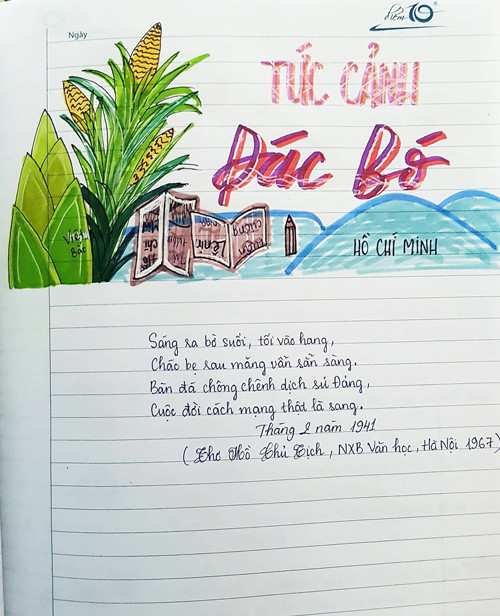 điểm 10
Ngày
TỨC CẢNH
Pác Bó
Việt
Bắc
HỒ CHÍ MINH
Sáng ra bờ suối, tối vào hang,
Cháo bẹ rau măng vẫn sẵn sàng.
Bàn đá chông chênh dịch sử Đảng,
Cuộc đời cách mạng thật là sang.
Tháng 2 năm 1941
(Thơ Hồ Chủ Tịch, NXB Văn học, Hà Nội 1967)